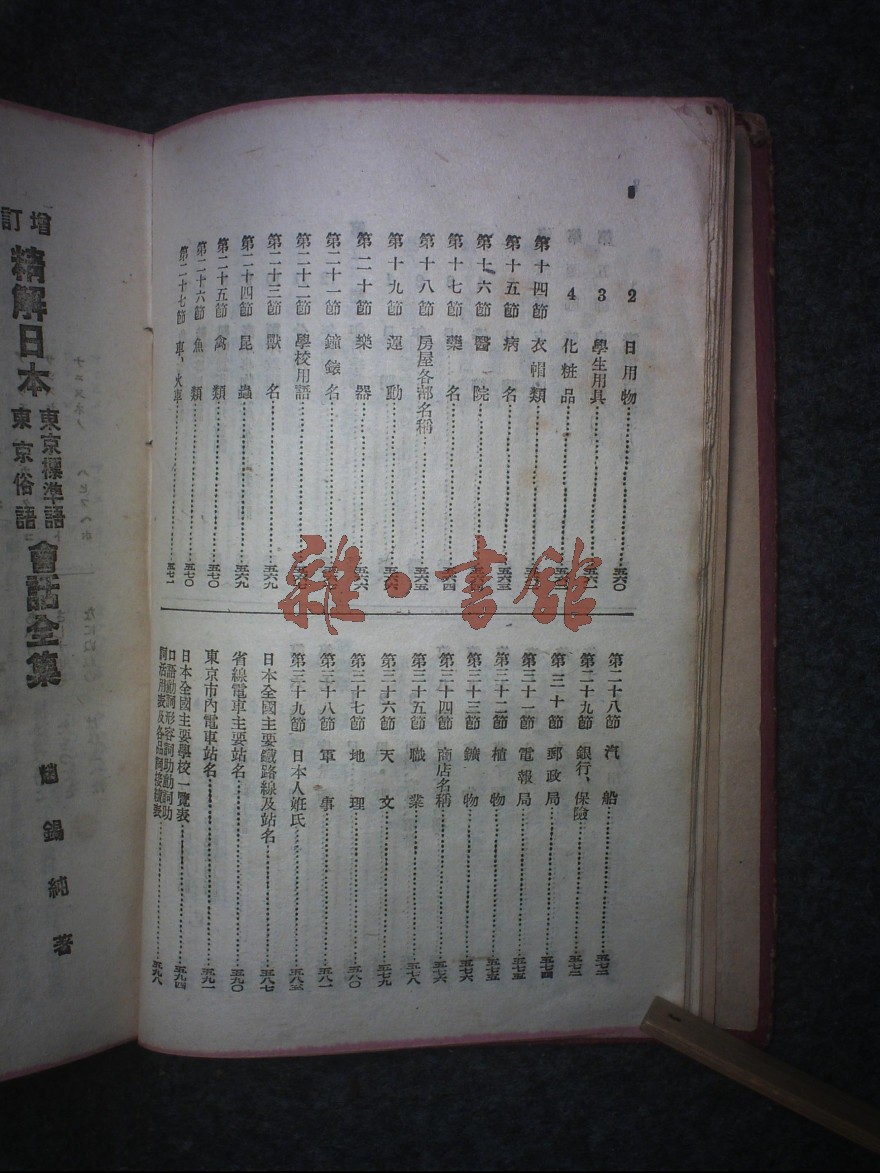 2 日用物……五六〇
3 學生用具……五六一
4 化粧品……五六
第十四節 衣帽類……五六
第十五節 病名……五六三
第十六節 醫院……五六四
第十七節 藥名……五六四
第十八節 房屋各部名稱……五六五
第十九節 運動……五六六
第二十節 樂器……五六六
第二十一節 鐘錶名……五六
第二十二節 學校用語……五六七
第二十三節 獸名……五六九
第二十四節 昆蟲……五六九
第二十五節 禽類……五七〇
第二十六節 魚類……五七〇
第二十七節 車、火車……五七一
第二十八節 汽船……五七二
第二十九節 銀行、保險……五七三
第三十節 郵政局……五七四
第三十一節 電報局……五七五
第三十二節 植物……五七五
第三十三節 鑛物……五七六
第三十四節 商店名稱……五七六
第三十五節 職業……五七八
第三十六節 天文……五七九
第三十七節 地理……五八〇
第三十八節 軍事……五八一
第三十九節 日本人姓氏……五八三
日本全國主要鐵路線及站名……五八七
省線電車主要站名……五九〇
東京市內電車站名……五九一
日本全國主要學校一覽表……五九四
口語動詞形容詞助動詞助
詞活用表及各品詞接續表……五九八
雜·書館
增訂 精解日本 東京標準語 東京俗語 會話全集 趙錫純著